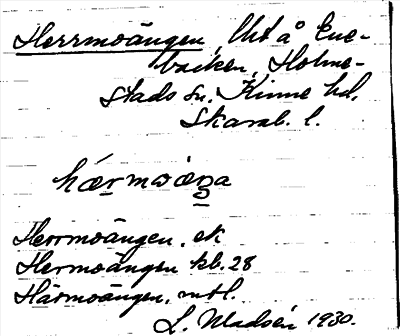 Herrmoängen, Mt å Ene-
backen, Holme-
stads sn. Kinne hd.
Skarab. l.
hærmωæŋa
Herrmoängen. ek
Hermoängen kb. 28
Härmoängen. mtl.
L. Madsén 1930.